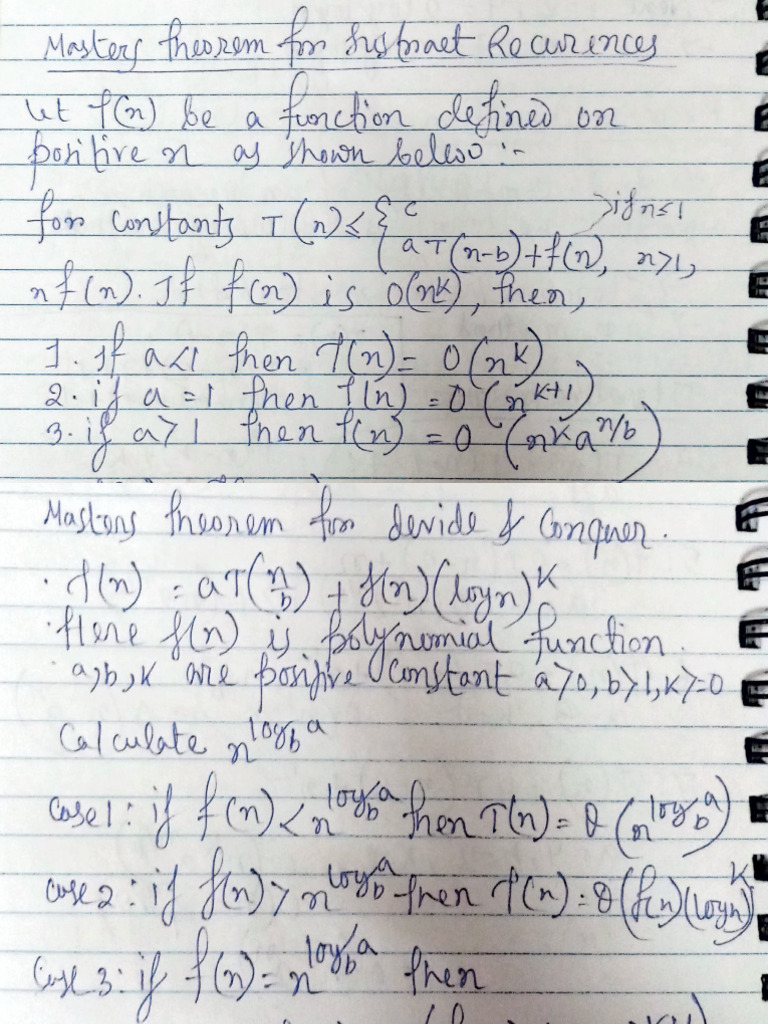 Masters theorem for Subtract Recurences
Let T(n) be a function defined on
positive n as shown below :-
for constants T(n) ≤ { c , if n≤1
aT(n-b)+f(n), n>1,
nf(n). If f(n) is O(n^k), then,
1. If a<1 then T(n) = O(n^k)
2. if a = 1 then T(n) = O(n^k+1)
3. if a>1 then T(n) = O (n^k a^n/b)
Masters theorem for devide & Conquer.
· T(n) = aT(n/b) + f(n)(logn)^K
· Here f(n) is polynomial function.
· a,b,k are positive constant a>0, b>1, k>=0
Calculate n^log_b a
Case1: if f(n) < n^log_b a then T(n) = θ(n^log_b a)
case2: if f(n) > n^log_b a then T(n) = θ(f(n)(logn)^K)
Case 3: if f(n) = n^log_b a then